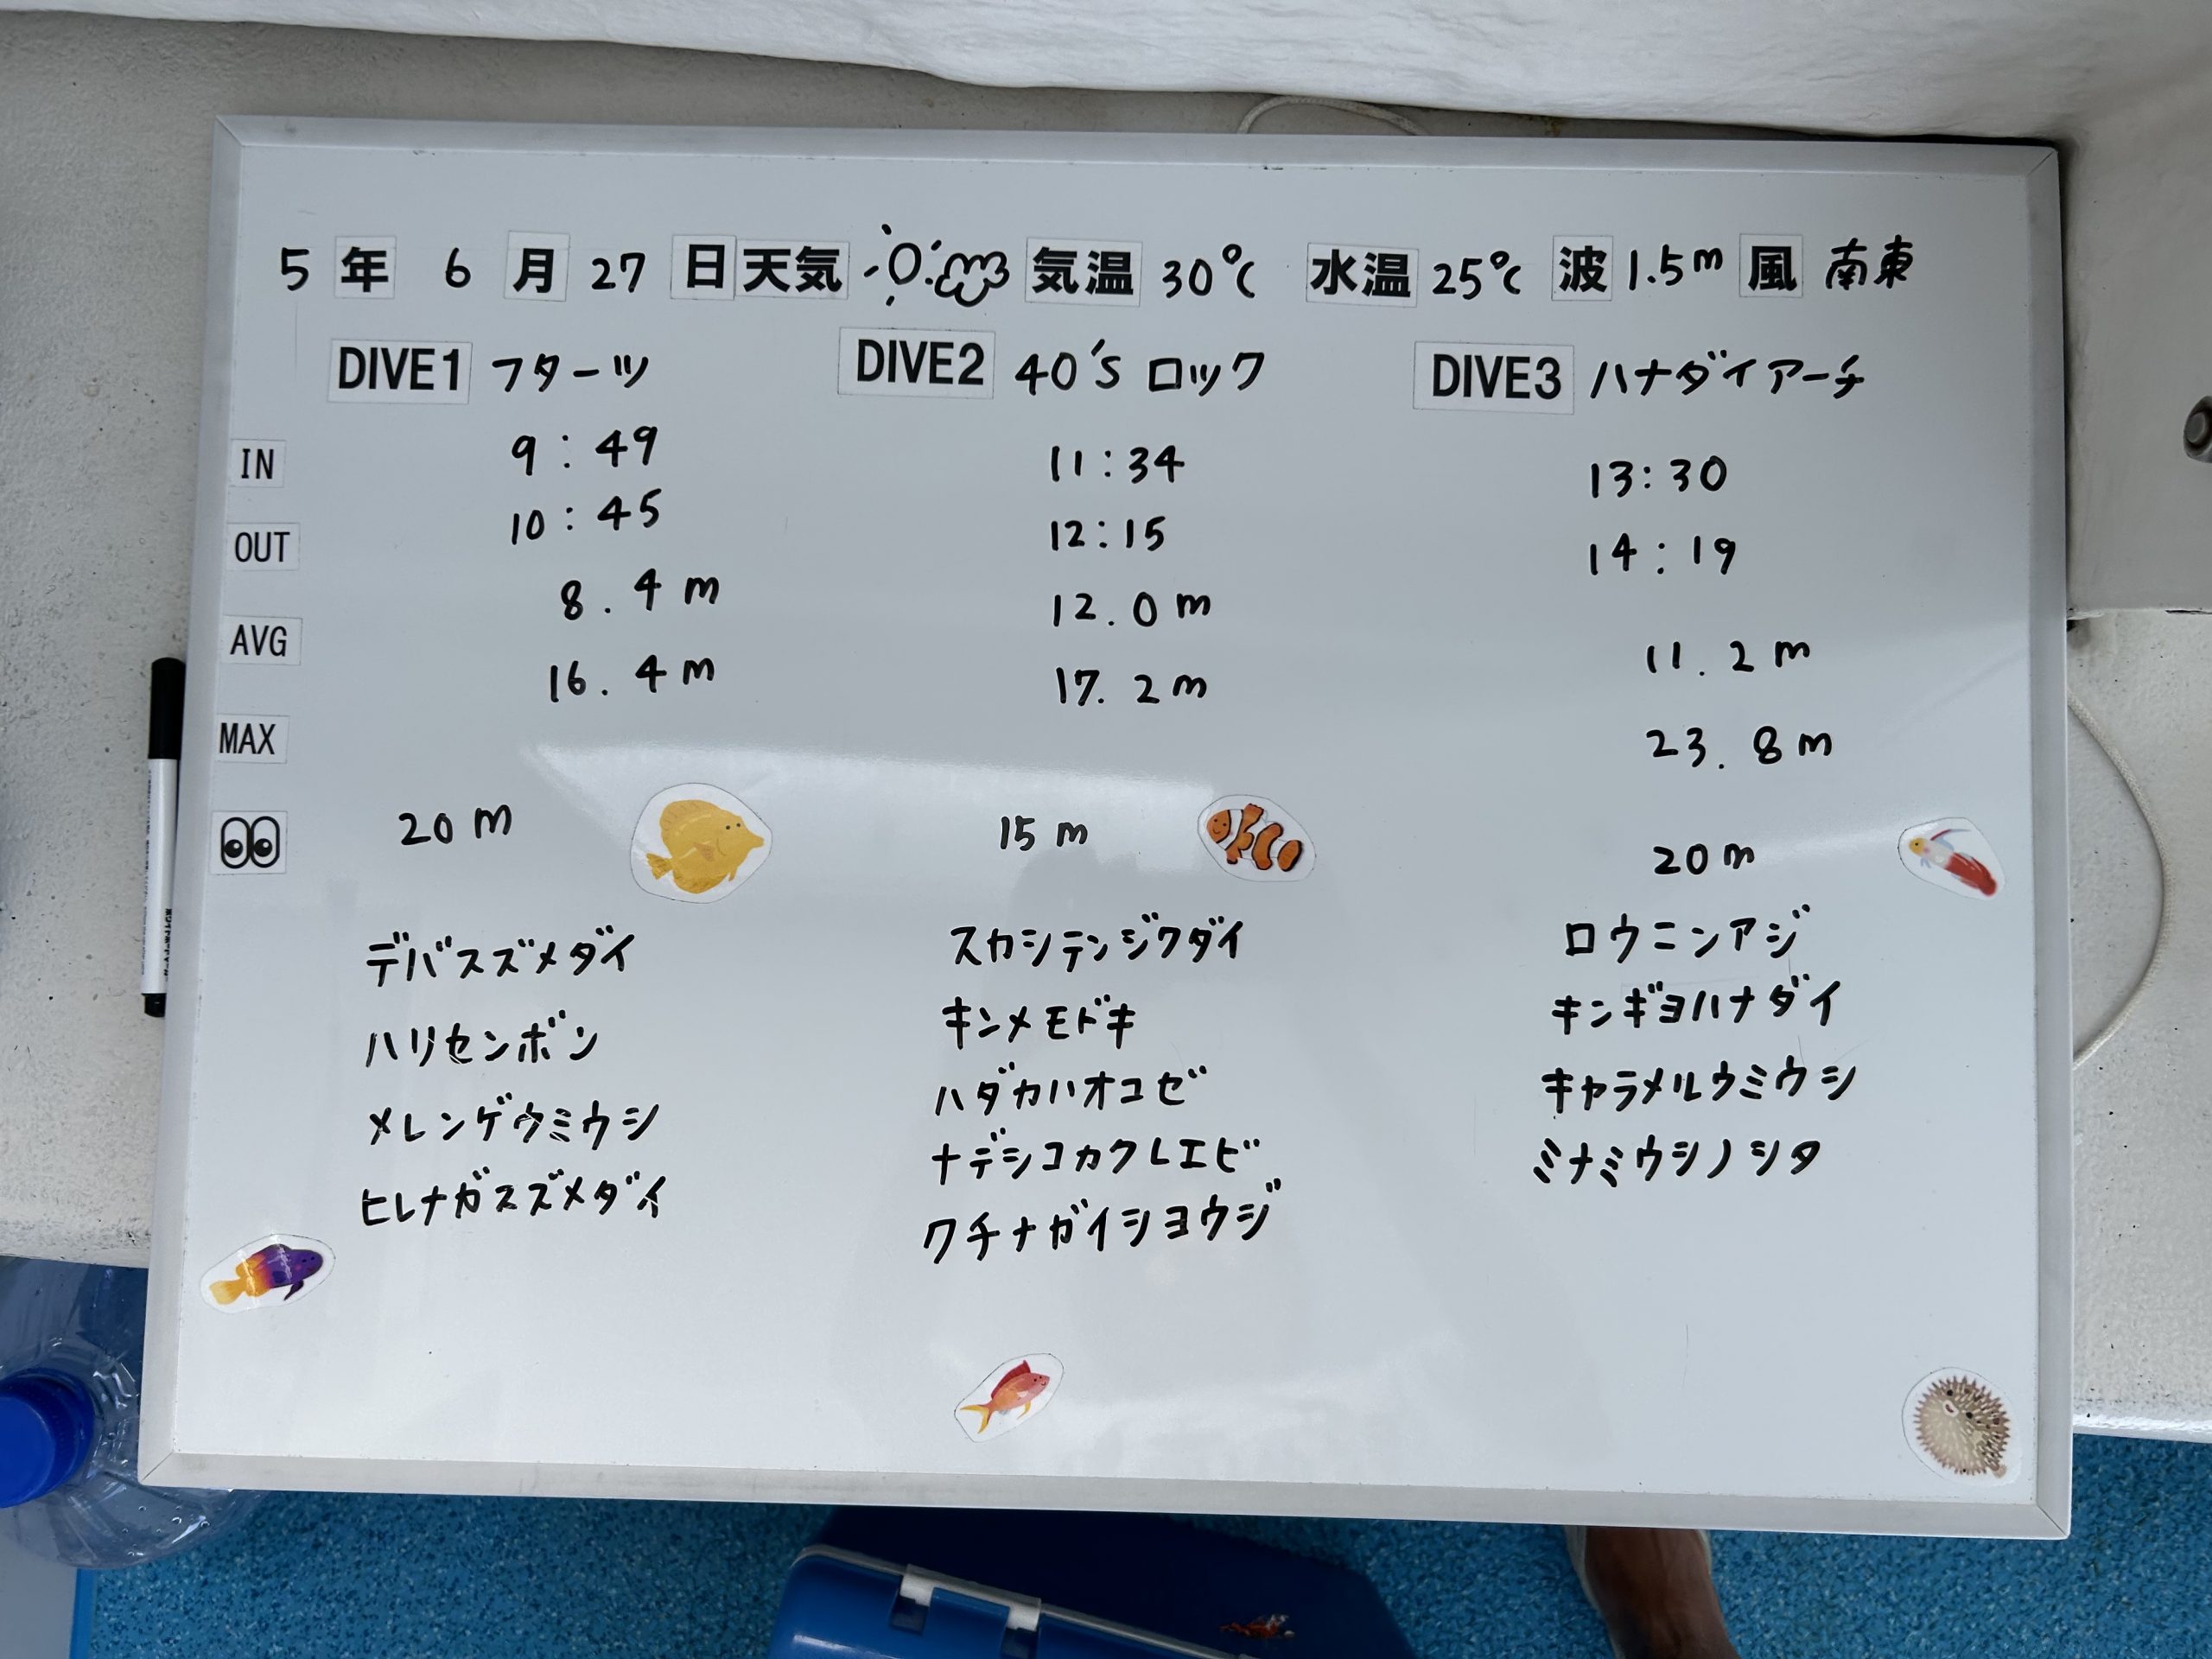 5 年 6 月 27 日 天気 気温 30℃ 水温 25℃ 波 1.5m 風 南東
DIVE1 フターツ DIVE2 40'S ロック DIVE3 ハナダイアーチ
IN 9:49 11:34 13:30
OUT 10:45 12:15 14:19
AVG 8.4m 12.0m 11.2m
MAX 16.4m 17.2m 23.8m
20m 15m 20m
デバスズメダイ スカシテンジクダイ ロウニンアジ
ハリセンボン キンメモドキ キンギョハナダイ
メレンゲウミウシ ハダカハオコゼ キャラメルウミウシ
ヒレナガスズメダイ ナデシコカクレエビ ミナミウシノシタ
クチナガイショウジ